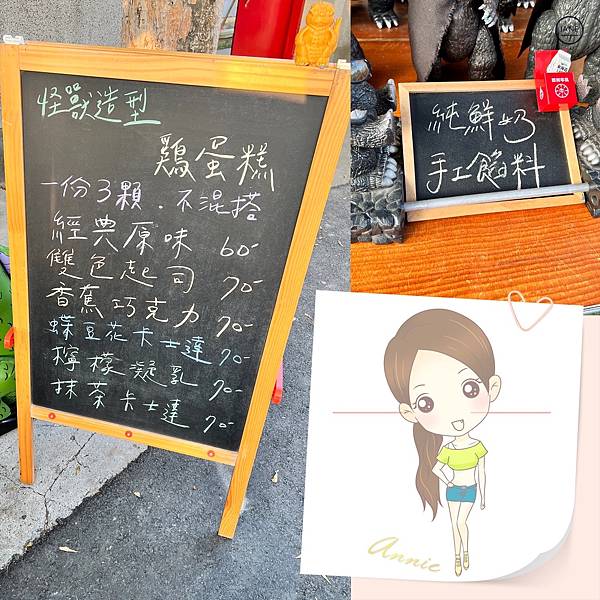 怪獸造型
鷄蛋糕
一份3顆．不混搭
經典原味 60-
雙色起司 70-
香蕉巧克力 70-
蝶豆花卡士達 70-
檸檬凝乳 70-
抹茶卡士達 70-
純鮮奶
手工餡料
Annie